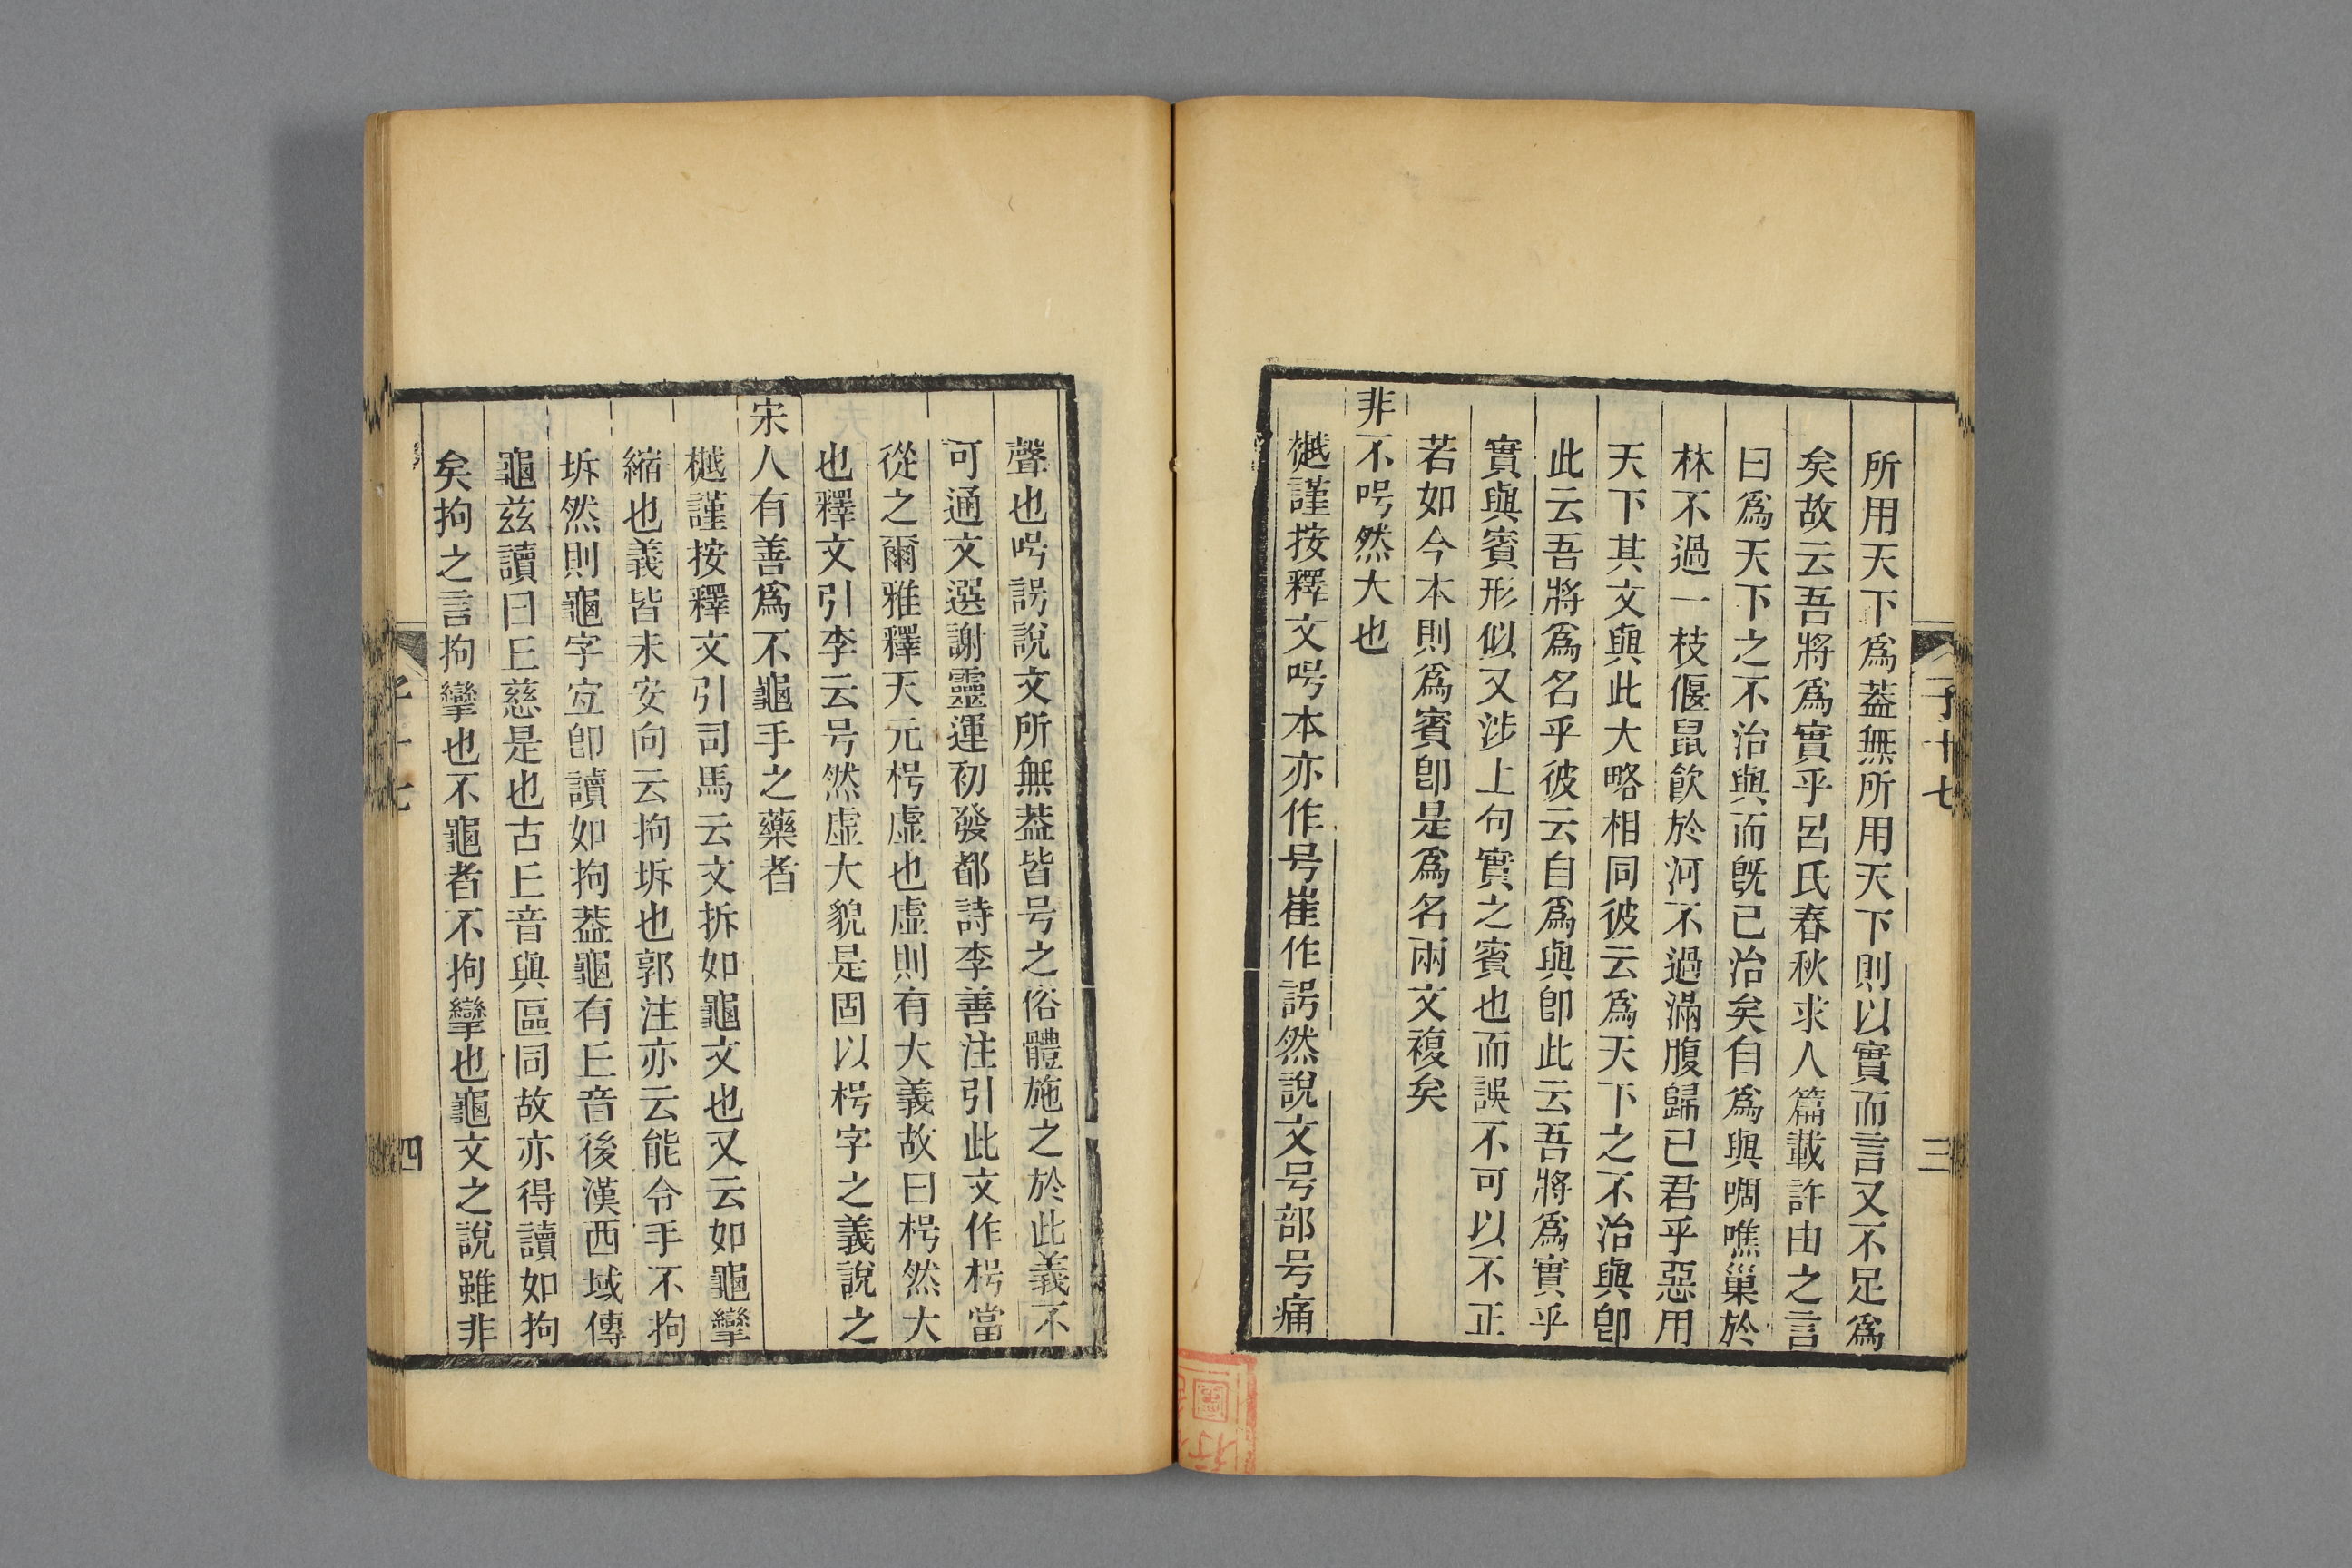 子十七
三
所用天下爲葢無所用天下則以實而言又不足爲
矣故云吾將爲實乎呂氏春秋求人篇載許由之言
曰爲天下之不治與而旣已治矣自爲與啁噍巢於
林不過一枝偃鼠飮於河不過滿腹歸已君乎惡用
天下其文與此大略相同彼云爲天下之不治與卽
此云吾將爲名乎彼云自爲與卽此云吾將爲實乎
實與賓形似又涉上句實之賓也而誤不可以不正
若如今本則爲賓卽是爲名兩文複矣
非不呺然大也
樾謹按釋文呺本亦作号崔作謣然說文号部号痛
聲也呺謣說文所無葢皆号之俗體施之於此義不
可通文選謝靈運初發都詩李善注引此文作枵當
從之爾雅釋天元枵虛也虛則有大義故曰枵然大
也釋文引李云号然虛大貌是固以枵字之義說之
宋人有善爲不龜手之藥者
樾謹按釋文引司馬云文拆如龜文也又云如龜攣
縮也義皆未安向云拘坼也郭注亦云能令手不拘
坼然則龜字宐卽讀如拘葢龜有丘音後漢西域傳
龜兹讀曰丘慈是也古丘音與區同故亦得讀如拘
矣拘之言拘攣也不龜者不拘攣也龜文之說雖非
子十七
四